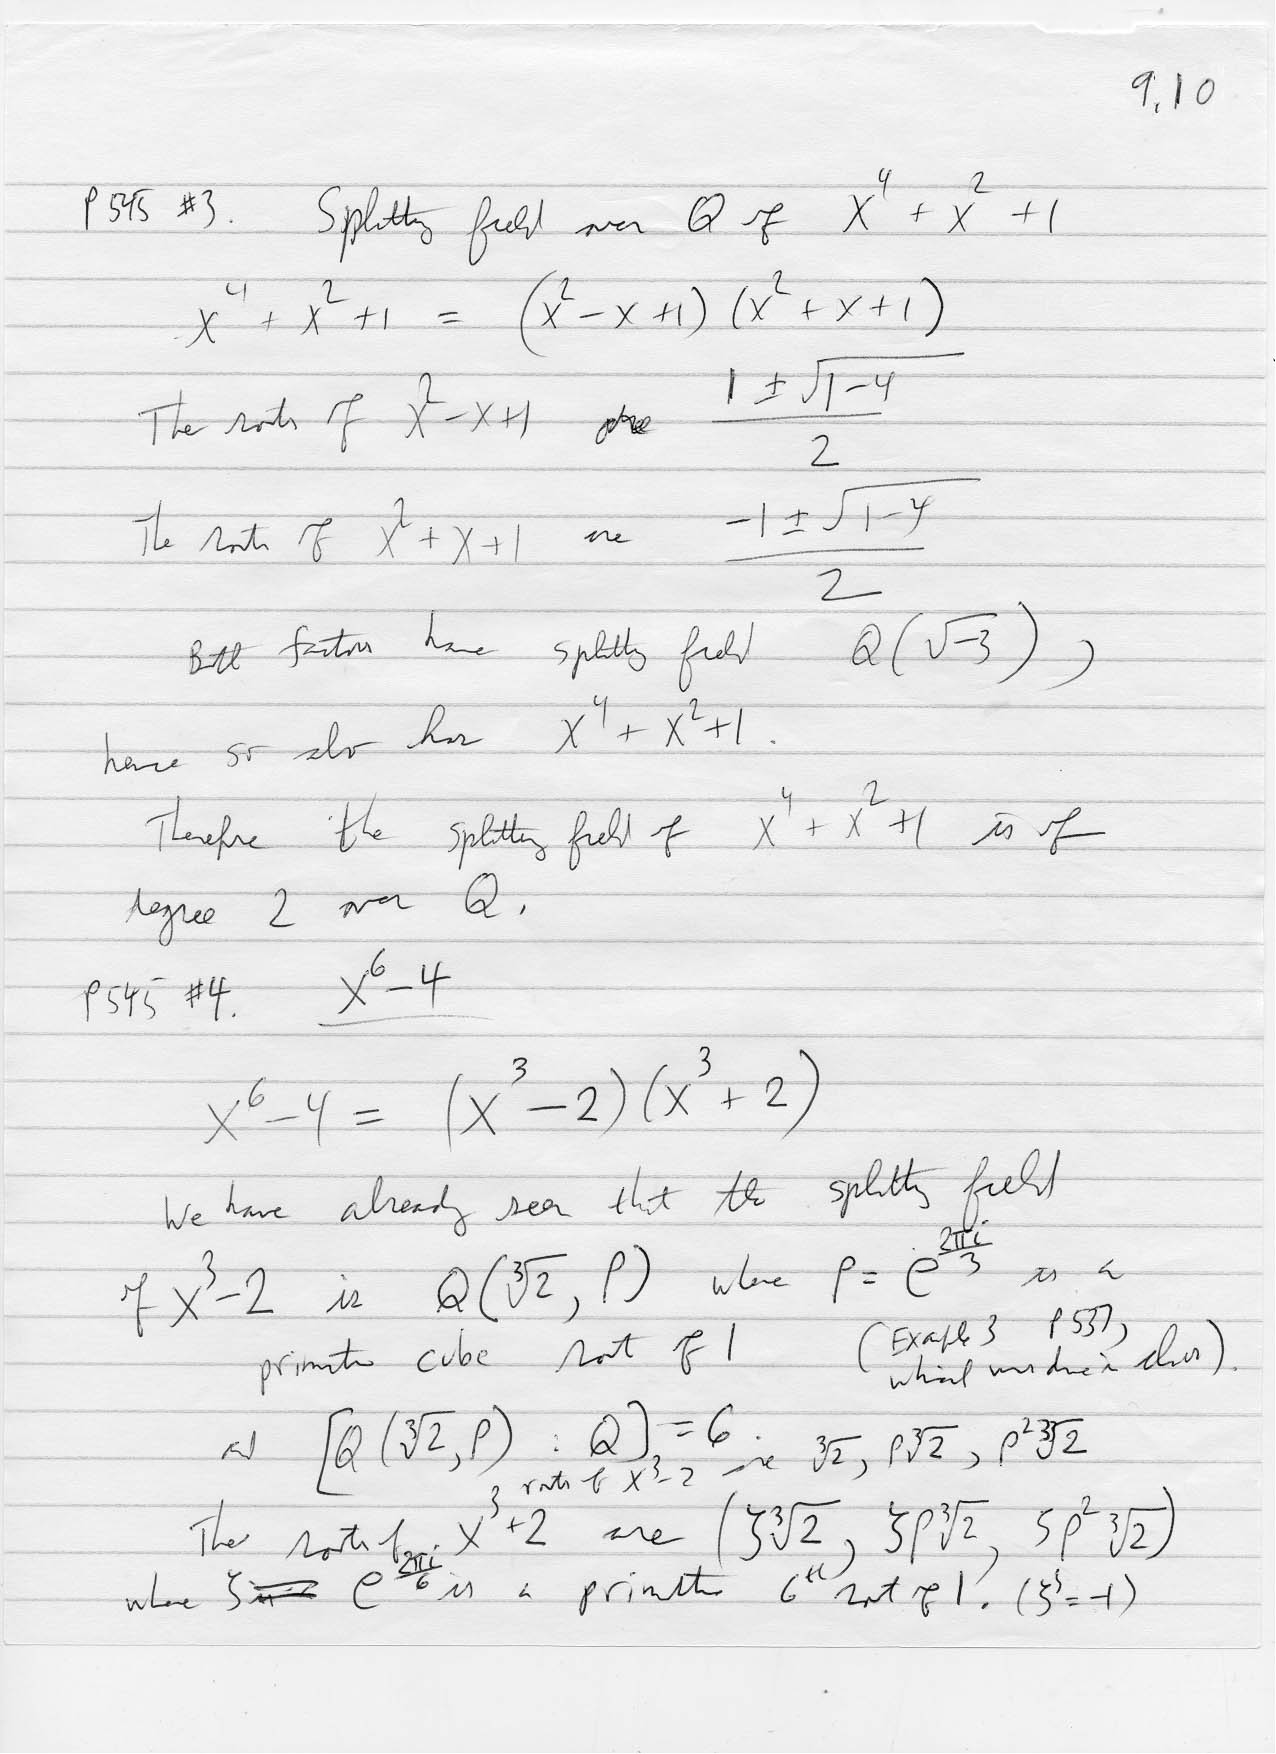 9.10
P 545 #3. Splitting field over Q of x⁴ + x² + 1
x⁴ + x² + 1 = (x² - x + 1) (x² + x + 1)
The roots of x² - x + 1 are (1 ± √(1-4))/2
The roots of x² + x + 1 are (-1 ± √(1-4))/2
Both factors have splitting field Q(√-3),
hence so also has x⁴ + x² + 1.
Therefore the splitting field of x⁴ + x² + 1 is of
degree 2 over Q.
P545 #4. x⁶ - 4
x⁶ - 4 = (x³ - 2)(x³ + 2)
We have already seen that the splitting field
of x³ - 2 is Q(∛2, ρ) where ρ = e^(2πi/3) is a
primitive cube root of 1 (Example 3 P 537,
which was done in class).
and [Q(∛2, ρ) : Q] = 6.
roots of x³ - 2 are ∛2, ρ∛2, ρ²∛2
The roots of x³ + 2 are (ζ∛2, ζρ∛2, ζρ²∛2)
where ζ = e^(2πi/6) is a primitive 6th root of 1. (ζ³ = -1)